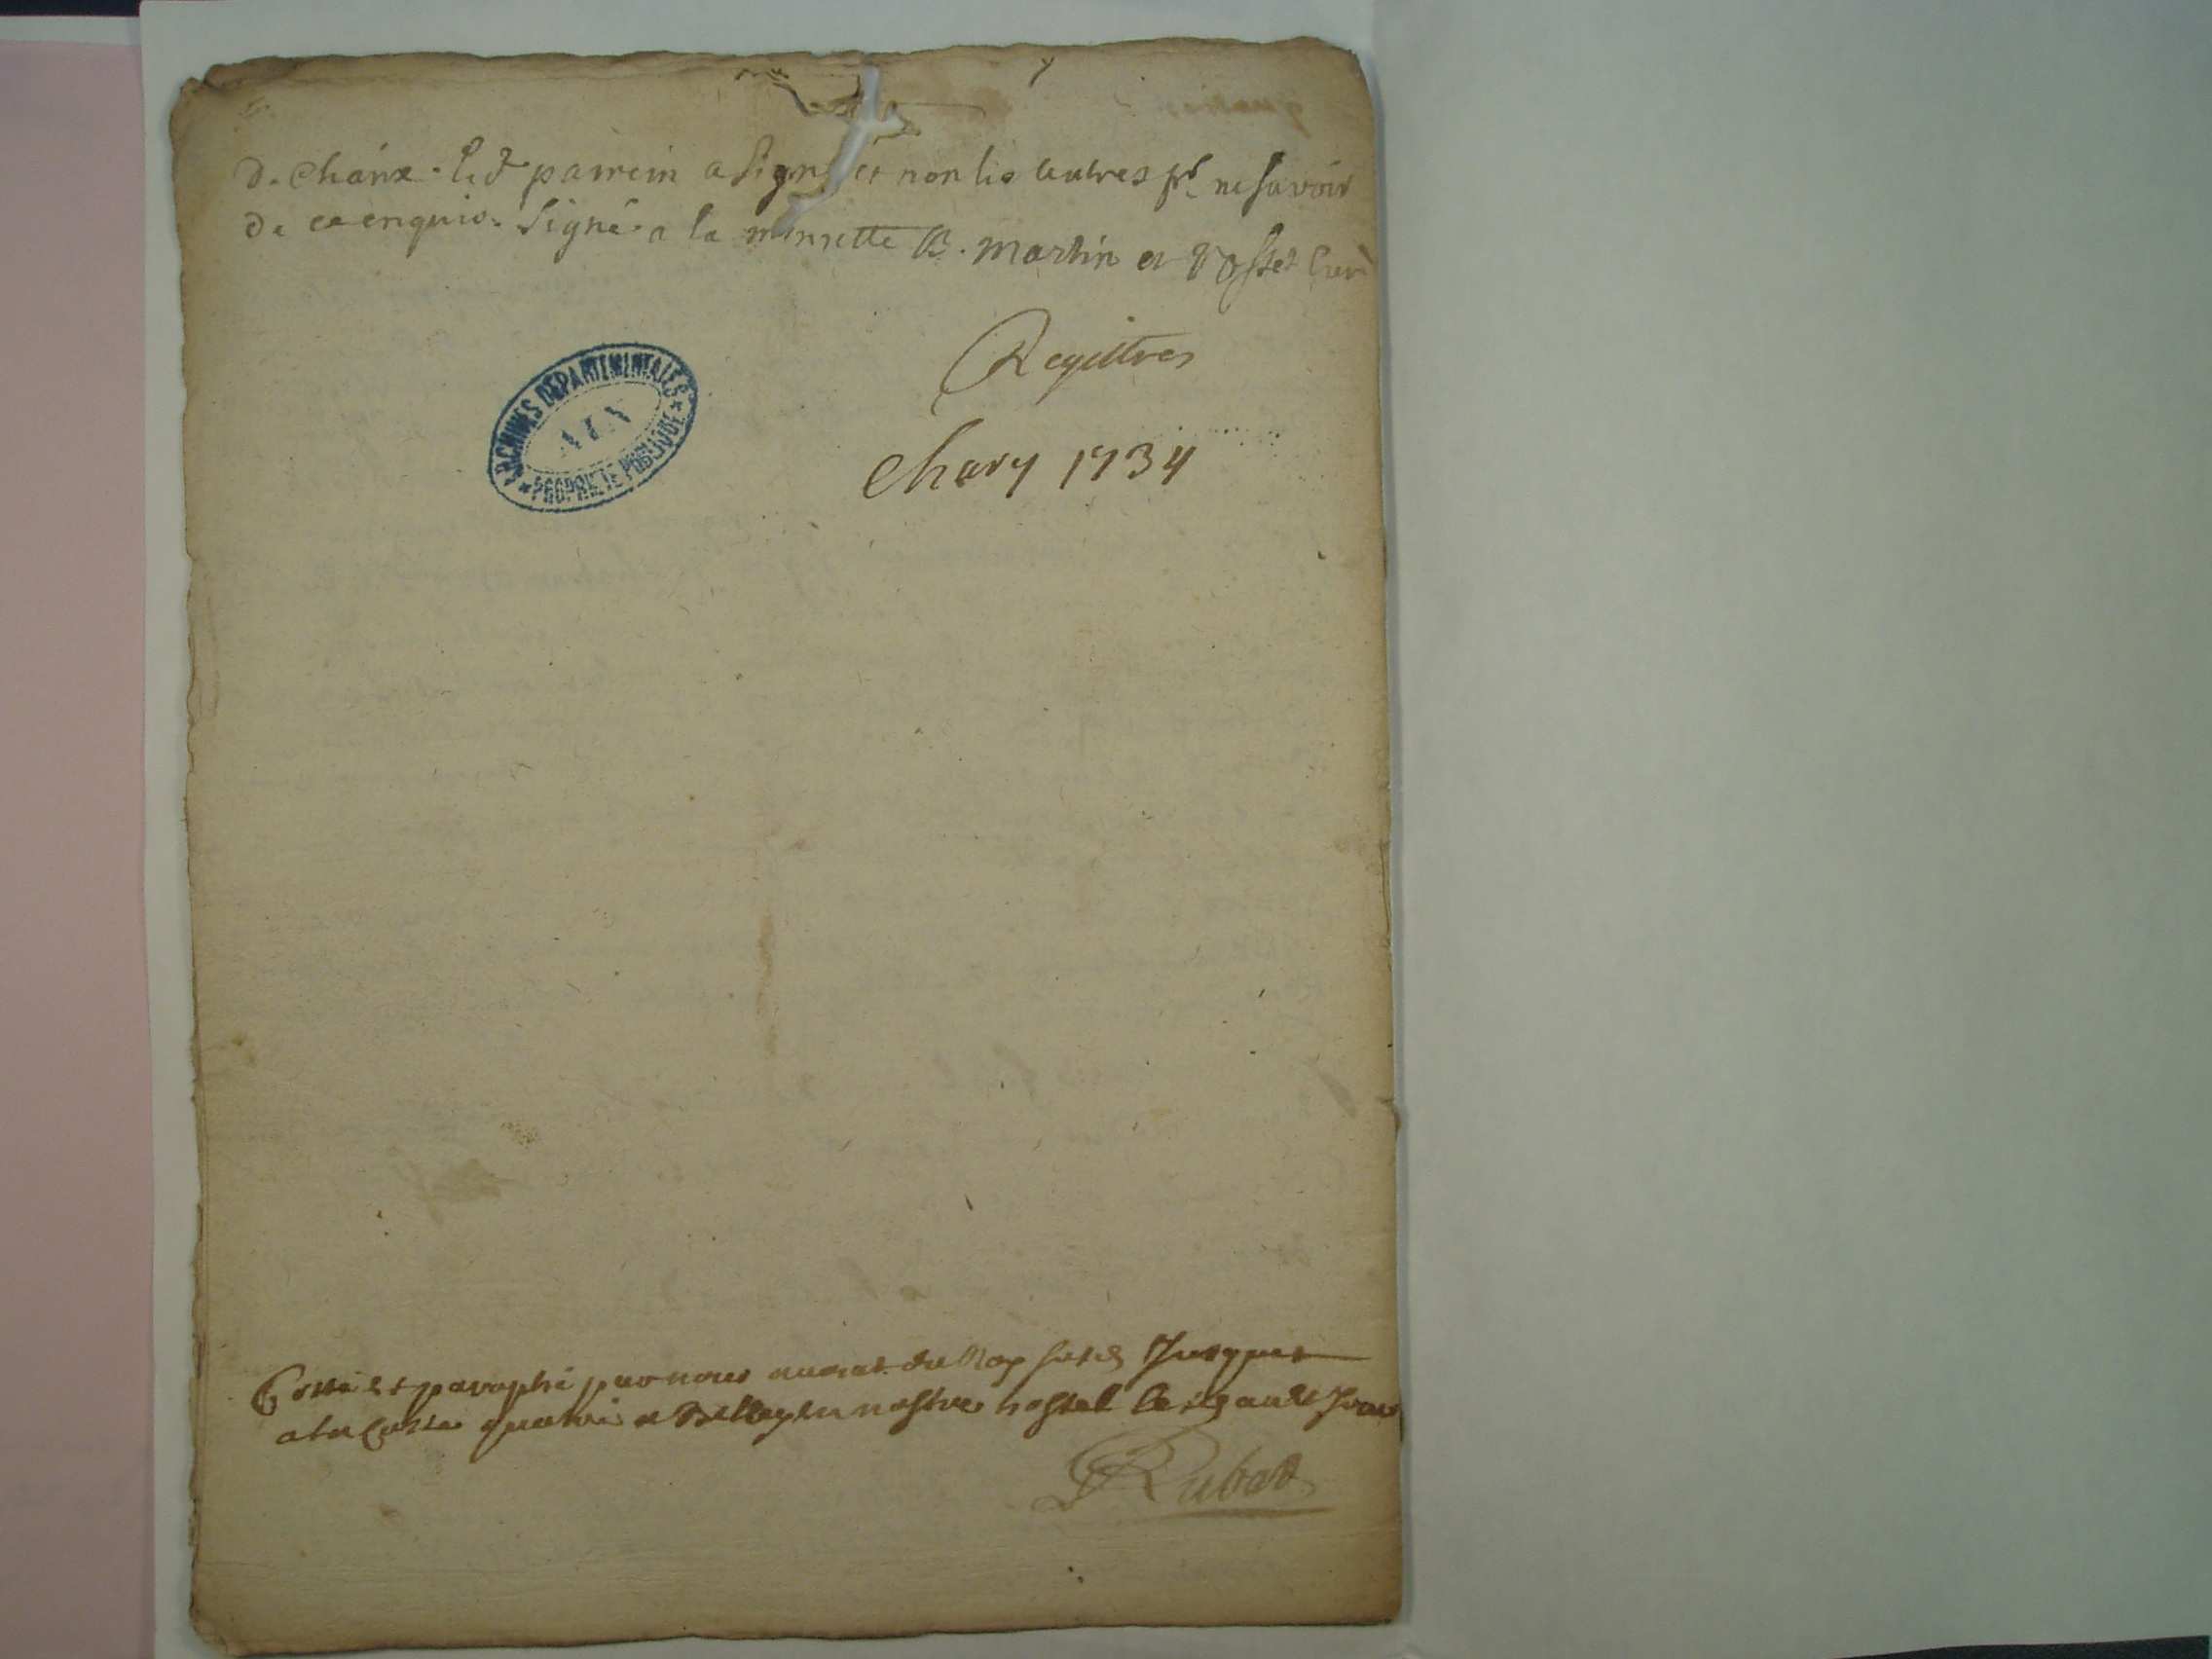 de Chanx. Led parrein a signé et non les autres pr ne savoir
de ce enquis. Signé a la minutte B. Martin et Cure
Registres
Chavy 1734
ARCHIVES DEPARTEMENTALES
AIN
PROPRIETE PUBLIQUE
Cotté et paraphé par nous du Jusques
a la Cotte quatre a Belley en nostre hostel le
Rubat